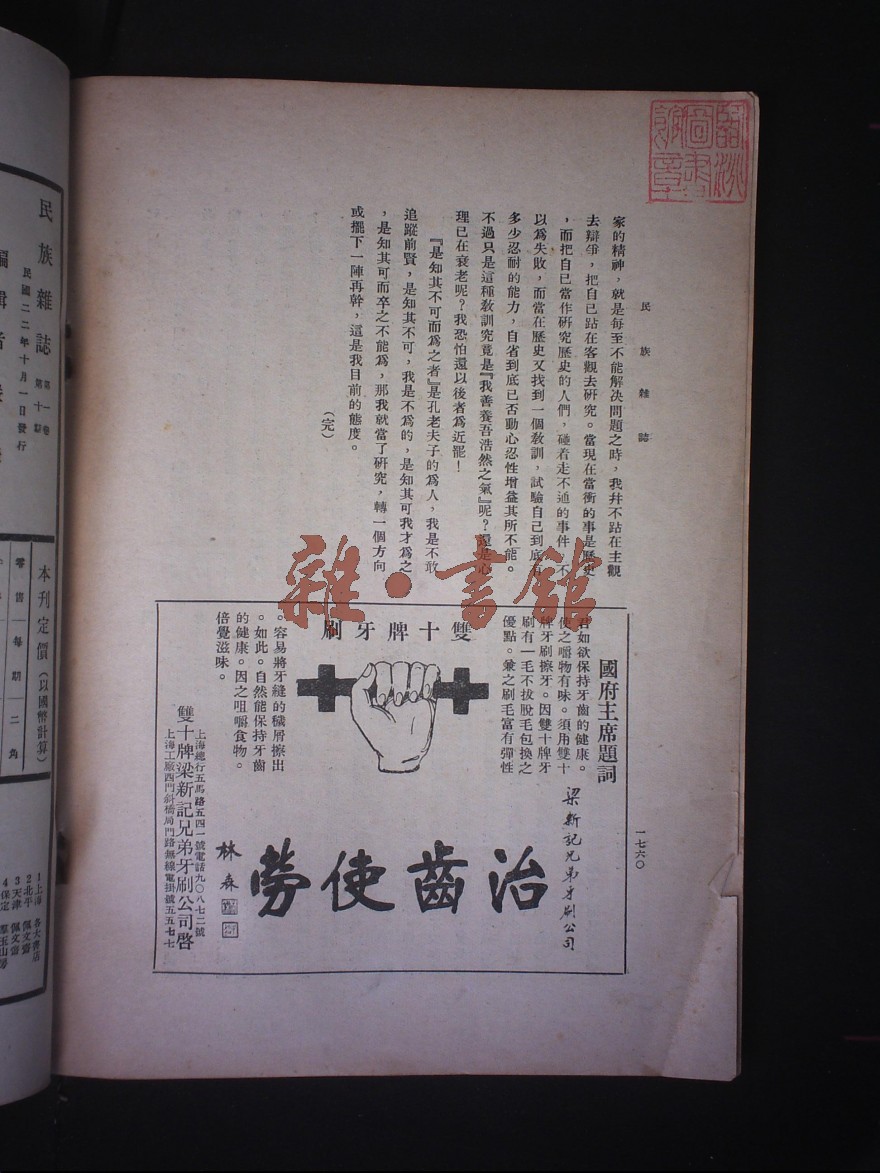 民族雜誌
一七六〇
家的精神，就是每至不能解决問題之時，我幷不跕在主觀
去辯爭，把自己跕在客觀去硏究。當現在當衝的事是歷史
，而把自己當作硏究歷史的人們，碰着走不通的事件，不
以爲失敗，而當在歷史又找到一個敎訓，試驗自己到底有
多少忍耐的能力，自省到底已否動心忍性增益其所不能。
不過只是這種敎訓究竟是『我善養吾浩然之氣』呢？還是心
理已在衰老呢？我恐怕還以後者爲近罷！
『是知其不可而爲之者』是孔老夫子的爲人，我是不敢
追蹤前賢，是知其不可，我是不爲的，是知其可我才爲之
，是知其可而卒之不能爲，那我就當了硏究，轉一個方向
或擺下一陣再幹，這是我目前的態度。
（完）
國府主席題詞
君如欲保持牙齒的健康。
使之嚼物有味。須用雙十
牌牙刷擦牙。因雙十牌牙
刷有一毛不拔脫毛包換之
優點。兼之刷毛富有彈性
雙十牌牙刷
。容易將牙縫的穢屑擦出
。如此。自然能保持牙齒
的健康。因之咀嚼食物。
倍覺滋味。
梁新記兄弟牙刷公司
治齒使勞
林森
上海總行五馬路五四一號電話九〇八七二號
雙十牌梁新記兄弟牙刷公司啓
上海工廠西門斜橋局門路無線電掛號五五七七
雜·書館
民族雜誌
第一卷
第十期
民國二二年十月一日發行
編輯者
本刊定價（以國幣計算）
零售每期二角
1上海 各大書店
2北平 佩文齋
3天津 佩文齋
4保定 羣玉山房